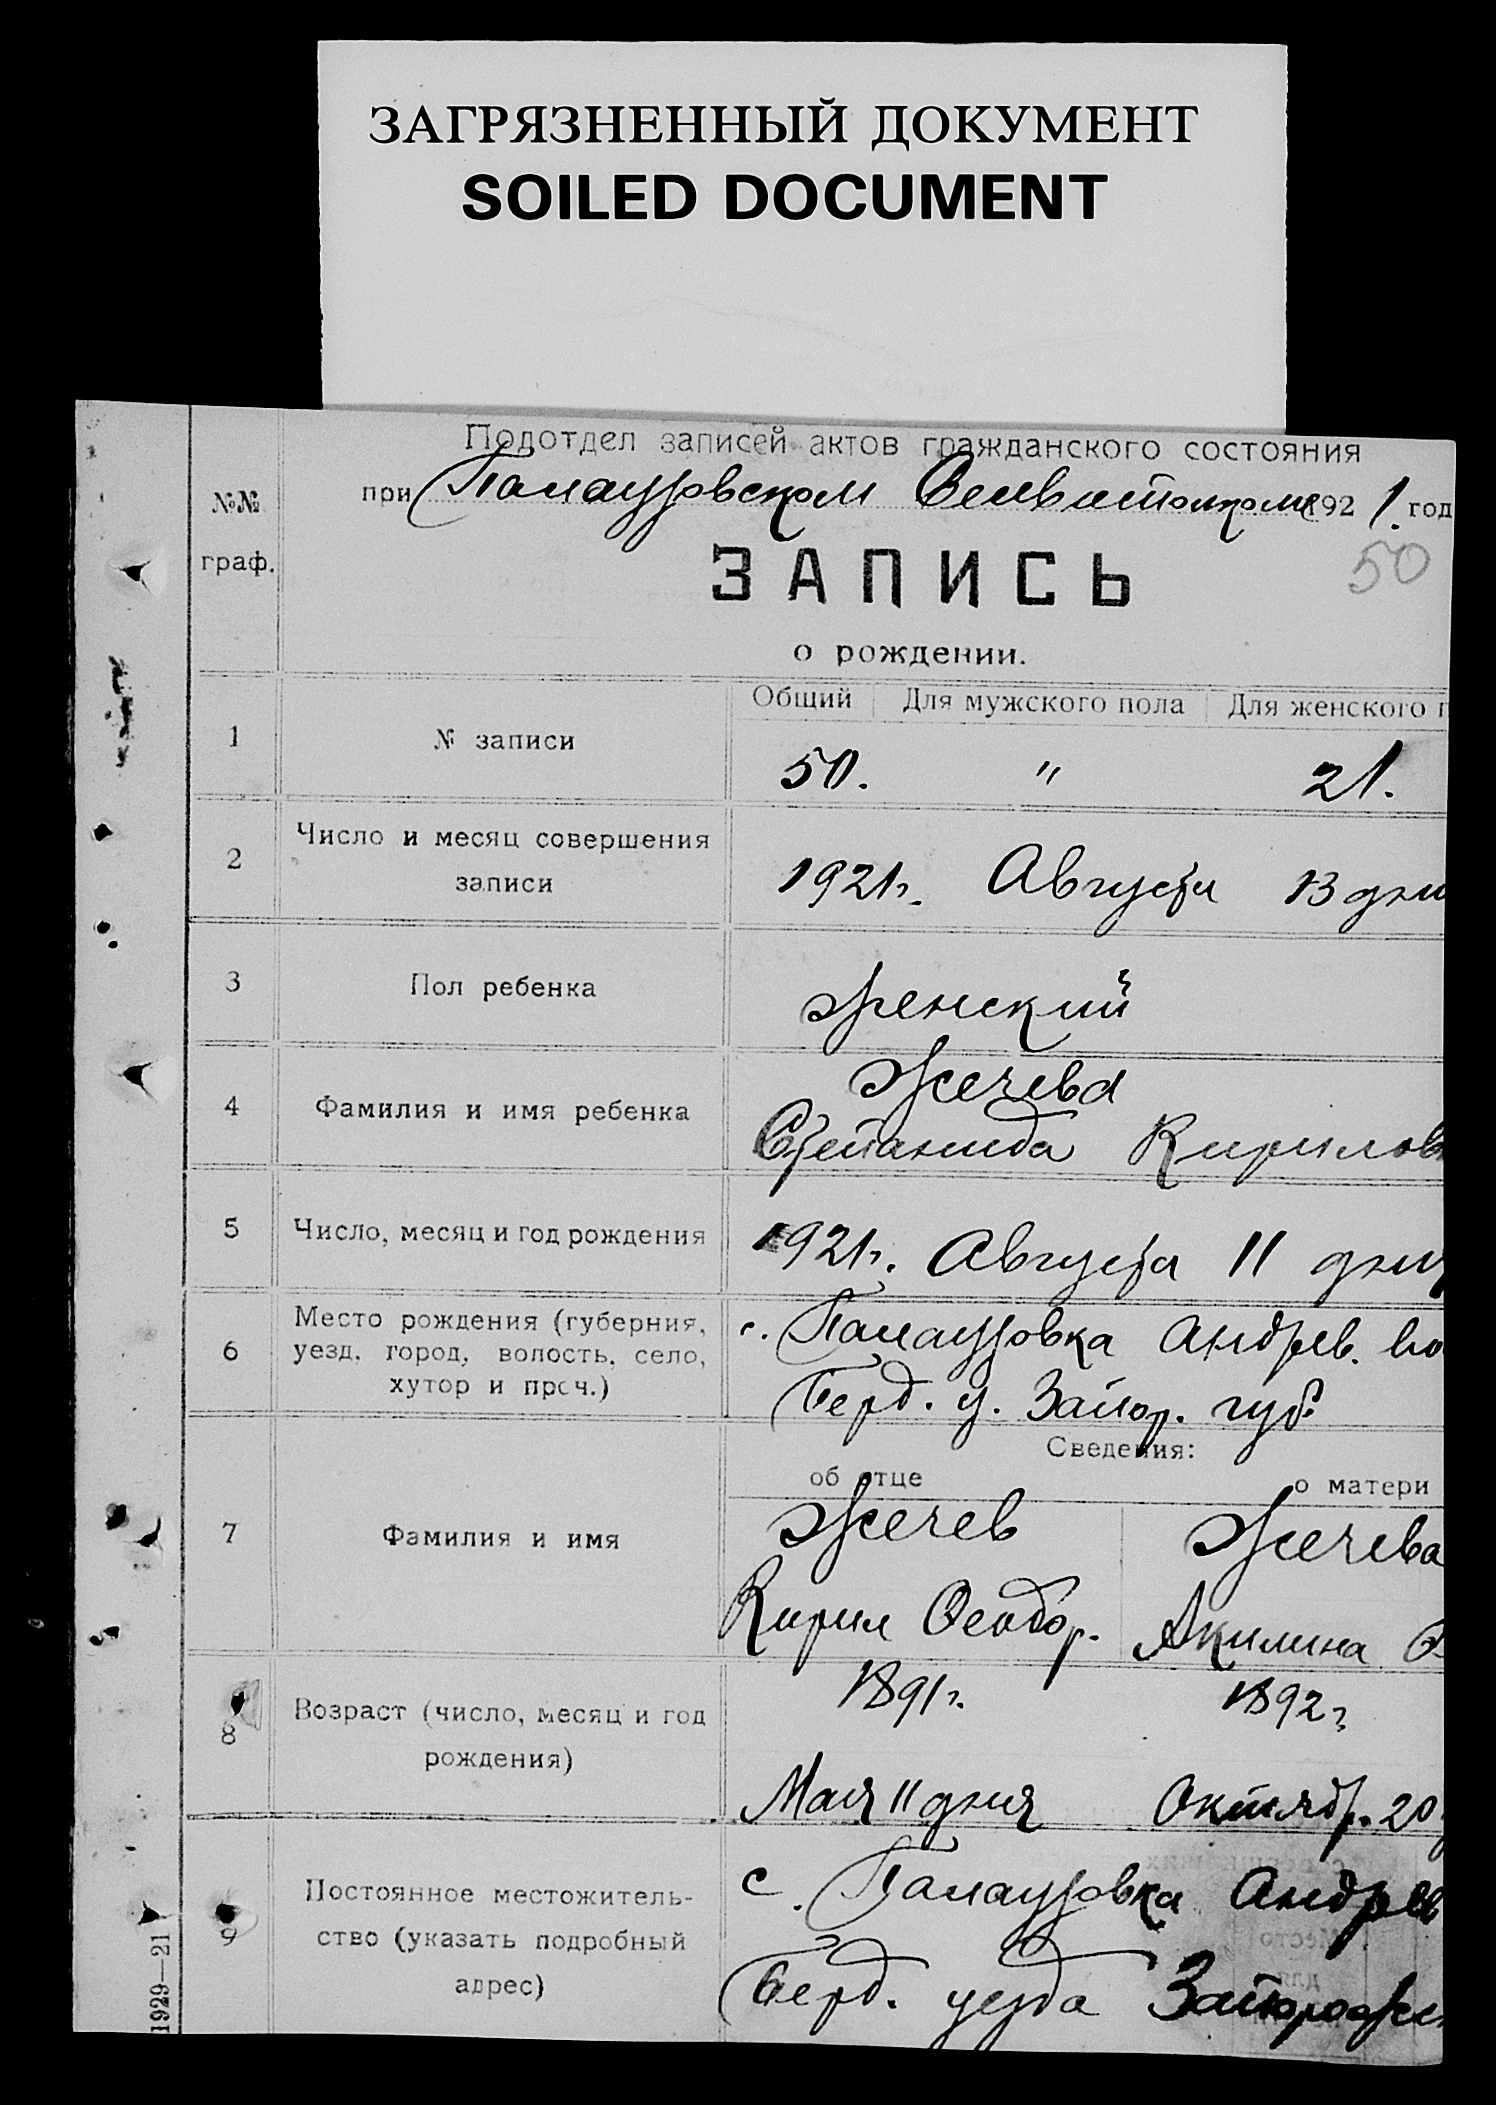 ЗАГРЯЗНЕННЫЙ ДОКУМЕНТ
SOILED DOCUMENT
Подотдел записей актов гражданского состояния
при Палаузовском 192 1. год
№№
граф.
50
ЗАПИСЬ
о рождении.
Общий Для мужского пола Для женского п
1 № записи 50. " 21.
2 Число и месяц совершения
записи 1921г. Августа 13 дня
3 Пол ребенка женский
4 Фамилия и имя ребенка Жечева
Степанида Кирилов
5 Число, месяц и год рождения 1921г. Августа 11 дня
6 Место рождения (губерния,
уезд, город, волость, село,
хутор и проч.)
с. Палаузовка Андрев. во
Берд. у. Запор. губ.
Сведения:
об отце о матери
7 Фамилия и имя Жечев Жечева
Кирил Феодор. Акилина
8 Возраст (число, месяц и год
рождения)
1891г. 1892г
Мая 11 дня Октябр. 20
9 Постоянное местожитель-
ство (указать подробный
адрес)
с. Палаузовка Андрев
Берд. уезда Запорожс
Место
для
1929—21